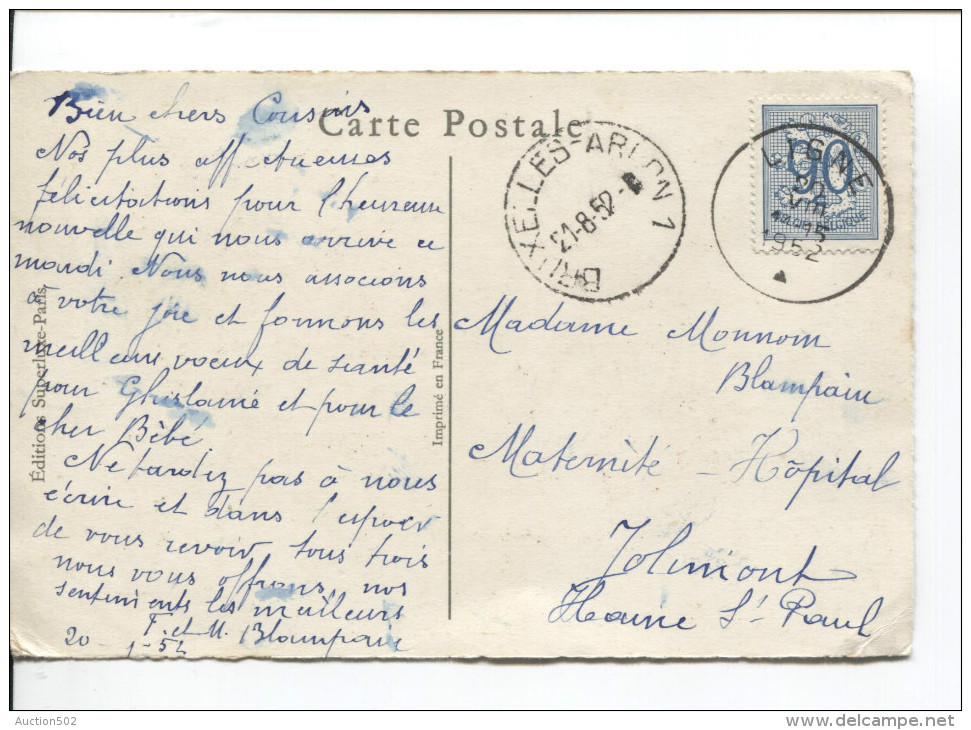 Carte Postale
Bien chers Cousins
Nos plus affectueuses
félicitations pour l'heureuse
nouvelle qui nous arrive ce
mardi. Nous nous associons
à votre joie et formons les
meilleurs voeux de santé
pour Ghislaine et pour le
cher Bébé
Ne tardez pas à nous
écrire et dans l'espoir
de vous revoir tous trois
nous vous offrons, nos
sentiments les meilleurs
F. et M. Blampain
20 - -52
Éditions Superluxe-Paris
Imprimé en France
BRUXELLES-ARLON 1
21-8-52-
LIGNE
20
VIII
15
1952
90
BELGIQUE
Madame Monnom
Blampain
Maternité - Hôpital
Jolimont
Haine St Paul
Auction502
www.delcampe.net